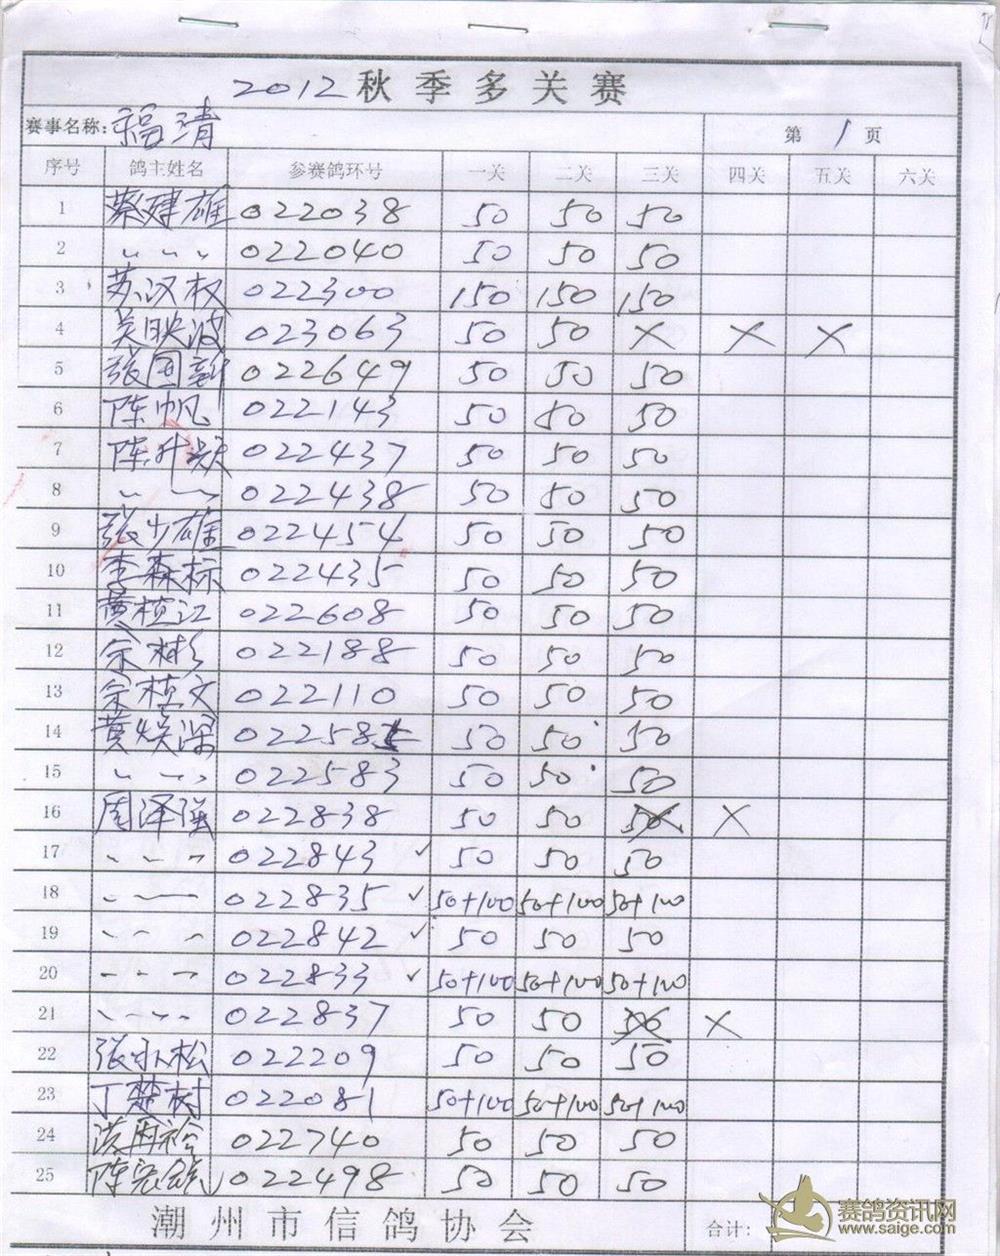 2012 秋季多关赛
赛事名称: 福清 第 1 页
序号 鸽主姓名 参赛鸽环号 一关 二关 三关 四关 五关 六关
1 蔡建雄 022038 50 50 50
2 〃 〃 〃 022040 50 50 50
3 苏汉权 022300 150 150 150
4 吴映波 023063 50 50 × × ×
5 张国新 022649 50 50 50
6 陈帆 022143 50 50 50
7 陈升 022437 50 50 50
8 〃 〃 022438 50 50 50
9 张少雄 022454 50 50 50
10 李森标 022435 50 50 50
11 黄植江 022608 50 50 50
12 余彬 022188 50 50 50
13 余植文 022110 50 50 50
14 黄焕深 022585 50 50 50
15 〃 〃 022583 50 50 50
16 周泽强 022838 50 50 50 ×
17 〃 〃 〃 022843 ✓ 50 50 50
18 〃 〃 〃 022835 ✓ 50+100 50+100 50+100
19 〃 〃 〃 022842 ✓ 50 50 50
20 〃 〃 〃 022833 ✓ 50+100 50+100 50+100
21 〃 〃 〃 022837 50 50 50 ×
22 张永松 022209 50 50 50
23 丁楚树 022081 50+100 50+100 50+100
24 022740 50 50 50
25 陈宏 022498 50 50 50
潮州市信鸽协会 合计:
赛鸽资讯网
www.saige.com